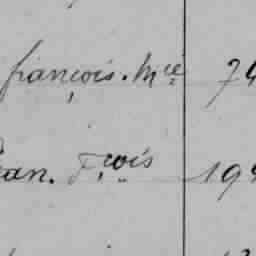 françois. Mce 74
Jean. Fçois 19